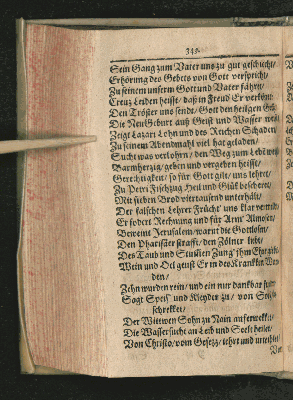 345.
Sein Gang zum Vater uns zu gut geschicht/
Erhörung des Gebets von Gott verspricht/
Zu seinem unserm Gott und Vater fähret/
Creuz Leiden heisst/ daß in Freud Er verkehrt
Den Tröster uns sendt/ Gott den heilgen Geist
Die Neu Geburt auß Geist und Wasser
Zeigt Lazari Lohn und des Reichen Schaden/
Zu seinem Abendmahl viel hat geladen/
Sucht was verlohrn/ den Weg zum Lebn weist
Barmherzig/ geben und vergeben heisst/
Gerechtigkeit/ so für Gott gilt/ uns lehret/
Zu Petri Fischzug Heil und Glük bescheret/
Mit sieben Brod viertausend unterhält/
Der falschen Lehrer Frücht uns klar
Er fodert Rechnung und für Arme Almosn/
Beweint Jerusalem/ warnt die Gottlosn/
Den Phariseer strafft/ den Zölner liebt/
Des Taub und Stummen Zung ihm Ehr gibt/
Wein und Oel geust Er in des Kranken Wun
den/
Zehn wurden rein/ und ein nur dankbar
Sagt Speiß und Kleyder zu/ von
schrekket/
Der Wittwen Sohn zu Nain auferwekket/
Die Wassersucht an Leib und Seel heilet/
Von Christo/ vom Gesetz/ lehrt und urtheilt